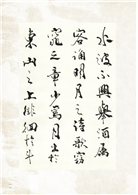 水波不興舉酒屬
客誦明月之詩歌窈
窕之章少焉月出於
東山之上徘徊於斗